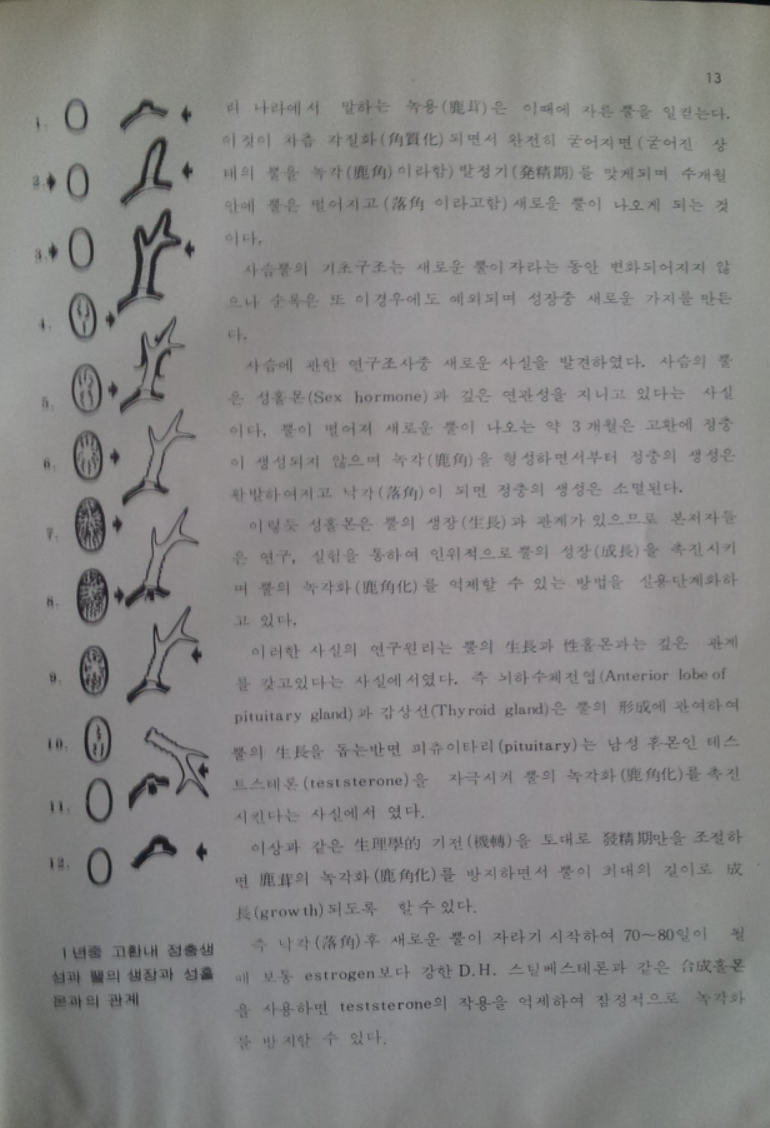 13
리 나라에서 말하는 녹용(鹿茸)은 이때에 자른 뿔을 일컫는다.
이것이 차츰 각질화(角質化)되면서 완전히 굳어지면(굳어진 상
태의 뿔을 녹각(鹿角)이라함) 발정기(発精期)를 맞게되며 수개월
안에 뿔은 떨어지고(落角 이라고함) 새로운 뿔이 나오게 되는 것
이다.
사슴뿔의 기초구조는 새로운 뿔이 자라는 동안 변화되어지지 않
으나 순록은 또 이경우에도 예외되며 성장중 새로운 가지를 만든
다.
사슴에 관한 연구조사중 새로운 사실을 발견하였다. 사슴의 뿔
은 성홀몬(Sex hormone)과 깊은 연관성을 지니고 있다는 사실
이다. 뿔이 떨어져 새로운 뿔이 나오는 약 3개월은 고환에 정충
이 생성되지 않으며 녹각(鹿角)을 형성하면서부터 정충의 생성은
활발하여지고 낙각(落角)이 되면 정충의 생성은 소멸된다.
이렇듯 성홀몬은 뿔의 생장(生長)과 관계가 있으므로 본저자들
은 연구, 실험을 통하여 인위적으로 뿔의 성장(成長)을 촉진시키
며 뿔의 녹각화(鹿角化)를 억제할 수 있는 방법을 실용단계화하
고 있다.
이러한 사실의 연구원리는 뿔의 生長과 性홀몬과는 깊은 관계
를 갖고있다는 사실에서였다. 즉 뇌하수체전엽(Anterior lobe of
pituitary gland)과 갑상선(Thyroid gland)은 뿔의 形成에 관여하여
뿔의 生長을 돕는반면 피쥬이타리(pituitary)는 남성 홀몬인 테스
트스테론(teststerone)을 자극시켜 뿔의 녹각화(鹿角化)를 촉진
시킨다는 사실에서 였다.
이상과 같은 生理學的 기전(機轉)을 토대로 發精期만을 조절하
면 鹿茸의 녹각화(鹿角化)를 방지하면서 뿔이 최대의 길이로 成
長(growth)되도록 할 수 있다.
즉 낙각(落角)후 새로운 뿔이 자라기 시작하여 70～80일이 될
때 보통 estrogen보다 강한 D.H. 스틸베스테론과 같은 合成홀몬
을 사용하면 teststerone의 작용을 억제하여 잠정적으로 녹각화
를 방지할 수 있다.
1.
2.
3.
4.
5.
6.
7.
8.
9.
10.
11.
12.
1년중 고환내 정충생
성과 뿔의 생장과 성홀
몬과의 관계